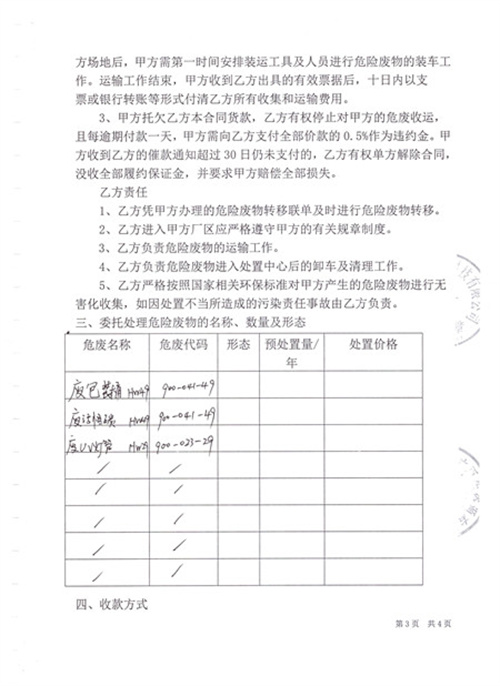 方场地后，甲方需第一时间安排装运工具及人员进行危险废物的装车工
作。运输工作结束，甲方收到乙方出具的有效票据后，十日内以支
票或银行转账等形式付清乙方所有收集和运输费用。
3、甲方托欠乙方本合同货款，乙方有权停止对甲方的危废收运，
且每逾期付款一天，甲方需向乙方支付全部价款的 0.5%作为违约金。甲
方收到乙方的催款通知超过 30 日仍未支付的，乙方有权单方解除合同，
没收全部履约保证金，并要求甲方赔偿全部损失。
乙方责任
1、乙方凭甲方办理的危险废物转移联单及时进行危险废物转移。
2、乙方进入甲方厂区应严格遵守甲方的有关规章制度。
3、乙方负责危险废物的运输工作。
4、乙方负责危险废物进入处置中心后的卸车及清理工作。
5、乙方严格按照国家相关环保标准对甲方产生的危险废物进行无
害化收集，如因处置不当所造成的污染责任事故由乙方负责。
三、委托处理危险废物的名称、数量及形态
危废名称 危废代码 形态 预处置量/年 处置价格
废包装桶 HW49 900-041-49
废活性碳 HW49 900-041-49
废UV灯管 HW29 900-023-29
/ /
/ /
/ /
/ /
/ /
四、收款方式
第 3 页 共 4 页